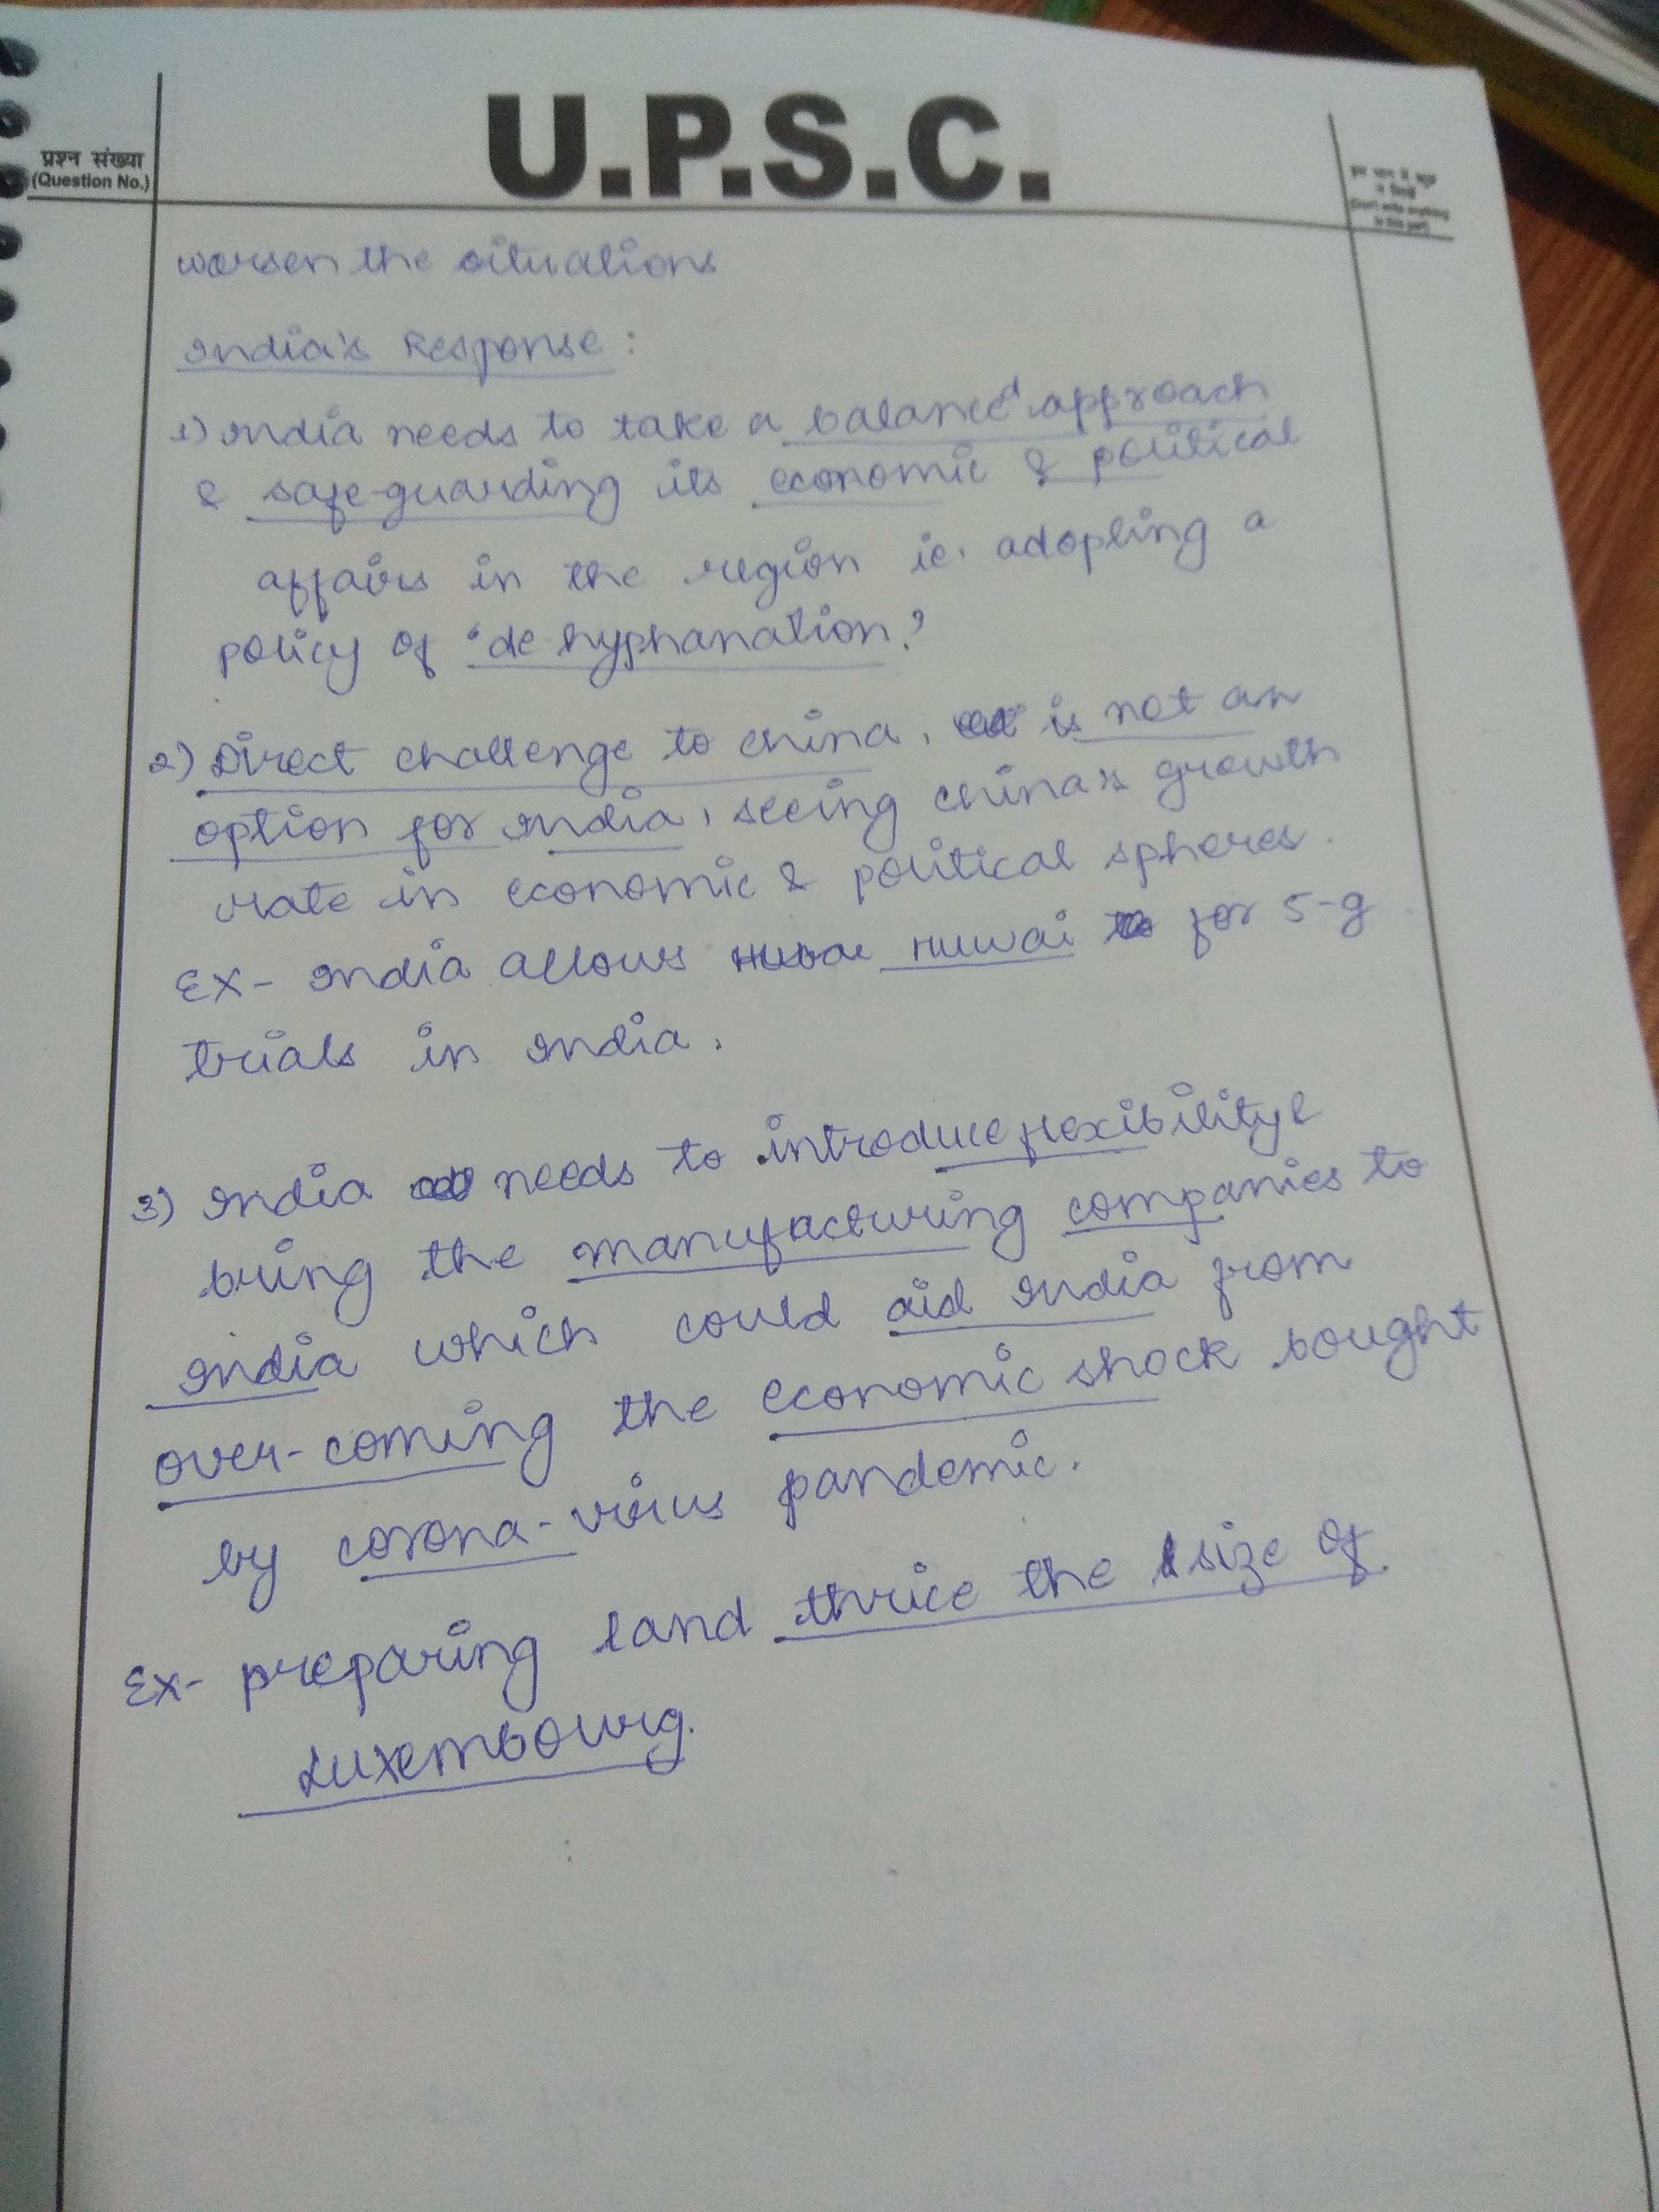 U.P.S.C.
प्रश्न संख्या
(Question No.)
(Don't write anything
in this part)
worsen the situations
India's Response :
1) India needs to take a balanced approach
& safe-guarding its economic & political
affairs in the region ie. adopting a
policy of 'de-hyphanation.'
2) Direct challenge to china, is not an
option for India, seeing china's growth
rate in economic & political spheres.
EX- India allows Huwai for 5-g
trials in India.
3) India needs to introduce flexibility &
bring the manufacturing companies to
India which could aid India from
over-coming the economic shock bought
by corona-virus pandemic.
Ex- preparing land thrice the size of
Luxembourg.